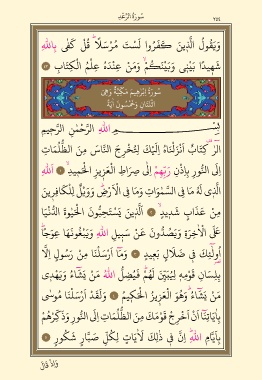 سُورَةُ الرَّعْدِ ٢٥٤
وَيَقُولُ الَّذِينَ كَفَرُوا لَسْتَ مُرْسَلًا قُلْ كَفٰى بِاللهِ
شَهِيدًا بَيْنِى وَبَيْنَكُمْ وَمَنْ عِنْدَهُ عِلْمُ الْكِتَابِ ﴿٤٣﴾
سُورَةُ اِبْرٰهِيمَ مَكِّيَّةٌ وَهِىَ
اثْنَتَانِ وَخَمْسُونَ اٰيَةً
بِسْمِ اللهِ الرَّحْمٰنِ الرَّحِيمِ
الٓرٰ كِتَابٌ اَنْزَلْنَاهُ اِلَيْكَ لِتُخْرِجَ النَّاسَ مِنَ الظُّلُمَاتِ
اِلَى النُّورِ بِاِذْنِ رَبِّهِمْ اِلٰى صِرَاطِ الْعَزِيزِ الْحَمِيدِ ﴿١﴾ اَللهِ
الَّذِى لَهُ مَا فِى السَّمٰوَاتِ وَمَا فِى الْاَرْضِ وَوَيْلٌ لِلْكَافِرِينَ
مِنْ عَذَابٍ شَدِيدٍ ﴿٢﴾ اَلَّذِينَ يَسْتَحِبُّونَ الْحَيٰوةَ الدُّنْيَا
عَلَى الْاٰخِرَةِ وَيَصُدُّونَ عَنْ سَبِيلِ اللهِ وَيَبْغُونَهَا عِوَجًا
اُولٰئِكَ فِى ضَلَالٍ بَعِيدٍ ﴿٣﴾ وَمَا اَرْسَلْنَا مِنْ رَسُولٍ اِلَّا
بِلِسَانِ قَوْمِهِ لِيُبَيِّنَ لَهُمْ فَيُضِلُّ اللهُ مَنْ يَشَاءُ وَيَهْدِى
مَنْ يَشَاءُ وَهُوَ الْعَزِيزُ الْحَكِيمُ ﴿٤﴾ وَلَقَدْ اَرْسَلْنَا مُوسٰى
بِاٰيَاتِنَا اَنْ اَخْرِجْ قَوْمَكَ مِنَ الظُّلُمَاتِ اِلَى النُّورِ وَذَكِّرْهُمْ
بِاَيَّامِ اللهِ اِنَّ فِى ذٰلِكَ لَاٰيَاتٍ لِكُلِّ صَبَّارٍ شَكُورٍ ﴿٥﴾
وَاِذْ قَالَ